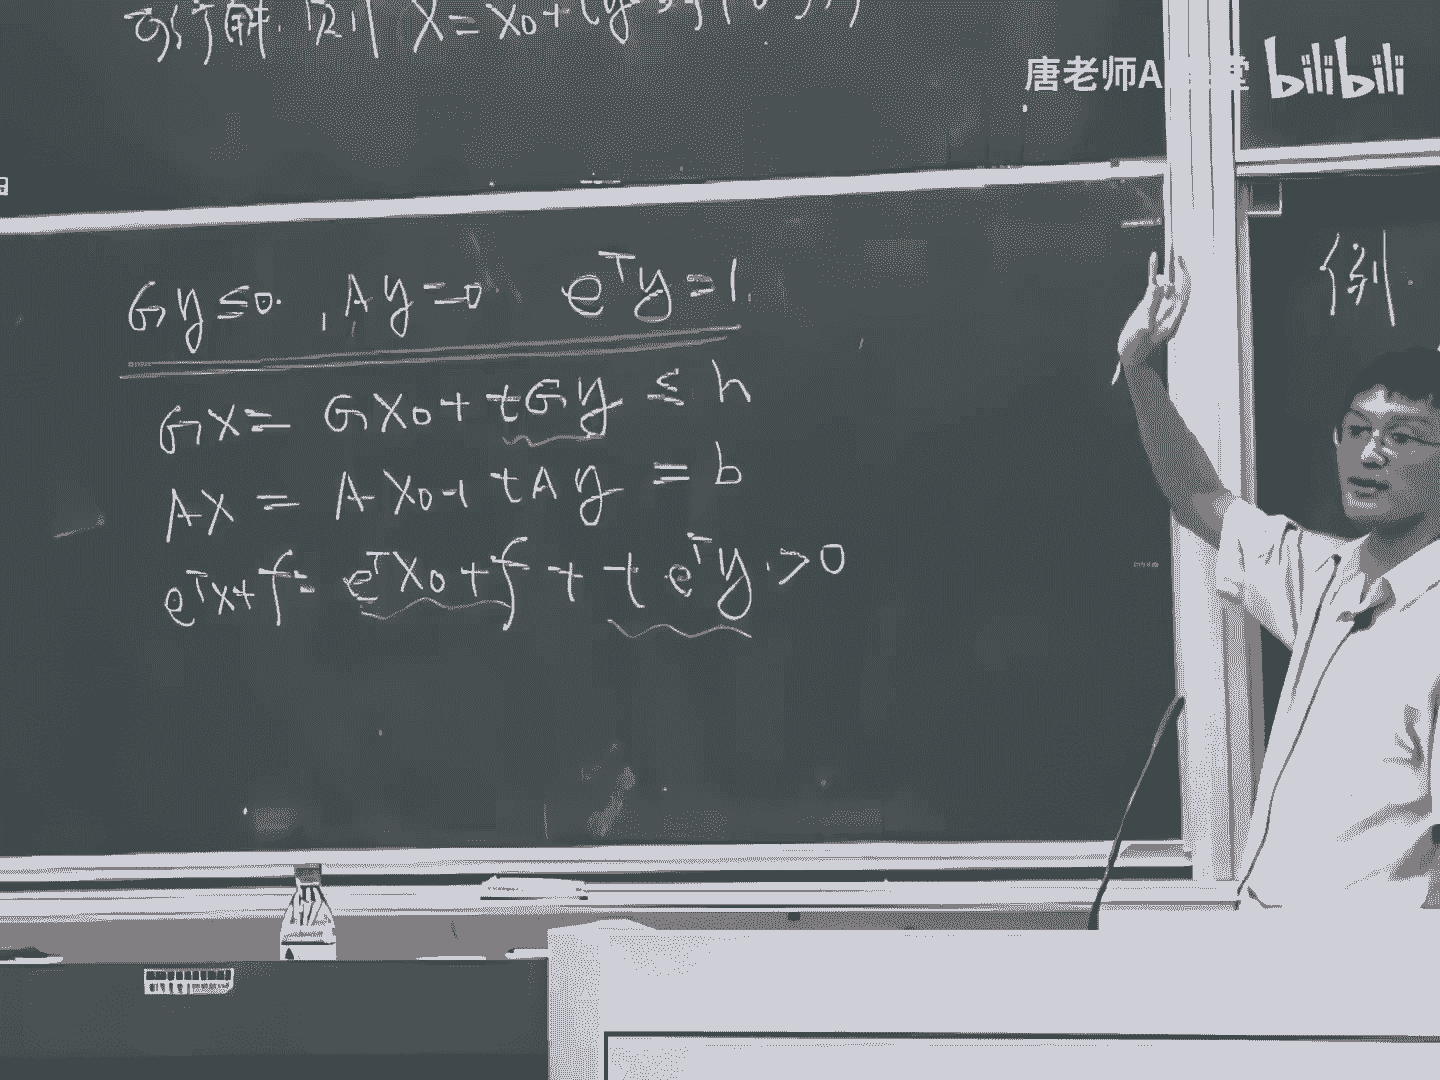 可行解, 则 X = X₀ +
唐老师A 堂 bilibili
Gy ≤ 0. , Ay = 0 eᵀy = 1.
GX = GX₀ + tGy ≤ h
AX = AX₀ + tAy = b
eᵀx + f = eᵀX₀ + f + t eᵀy. > 0
例.